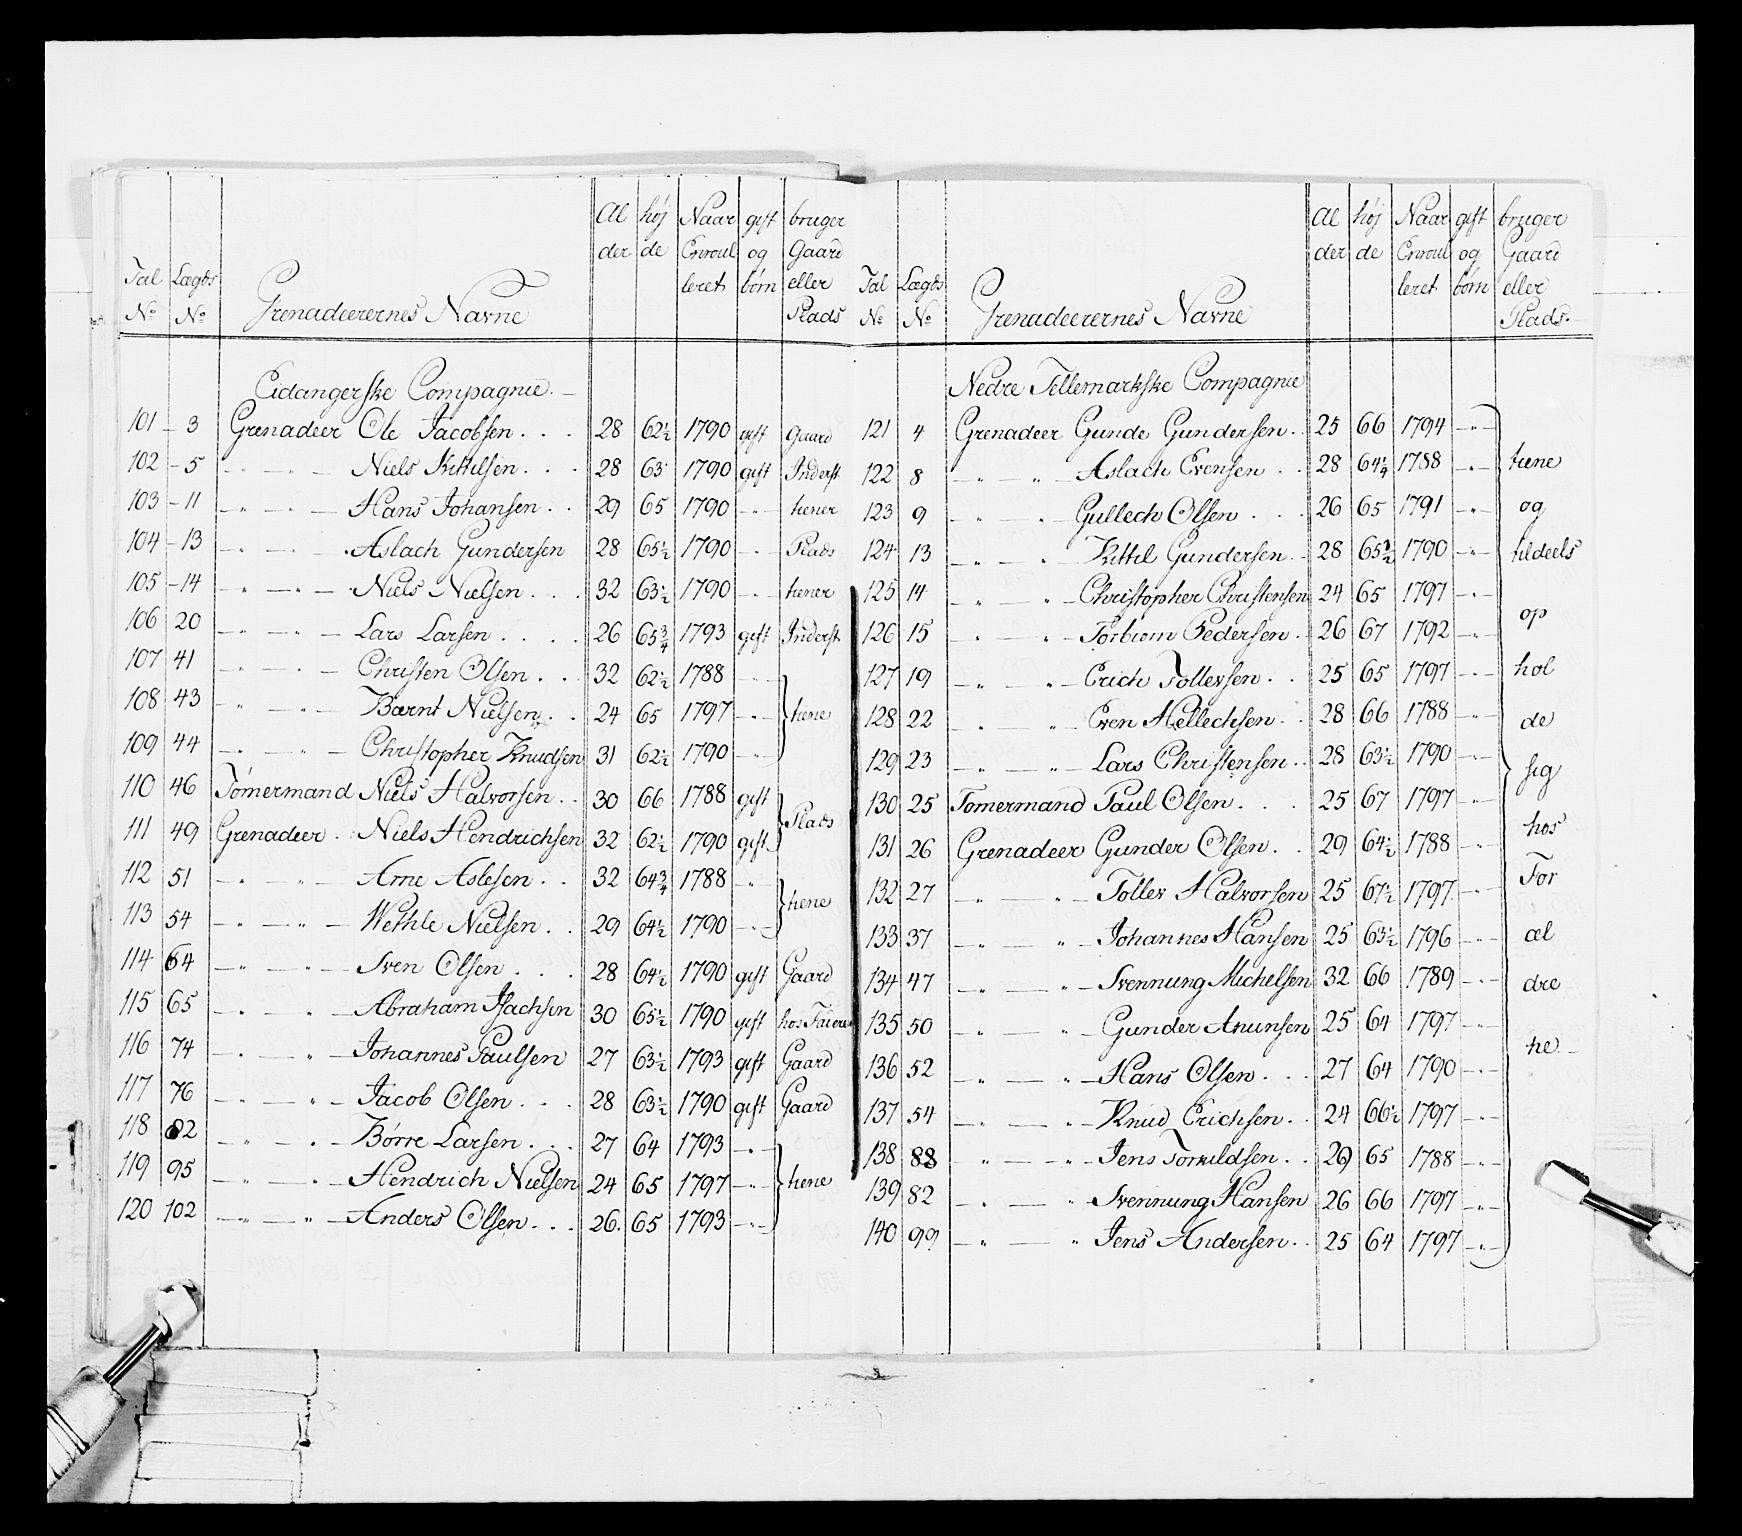 Tal No | Lægds No | Grenadeerernes Navne | Al der | høj de | Naar Enroul leret | gift og børn | bruger Gaard eller Plads
Eidangerske Compagnie.
101 - 3 Grenadeer Ole Jacobsen . . . 28 62½ 1790 gift Gaard
102 - 5 — " — Niels Kittilsen . . . 28 63 1790 gift Inderst
103 - 11 — " — Hans Johansen . . 29 65 1790 - " - tiener
104 - 13 — " — Aslach Gundersen 28 65½ 1790 - " - Plads
105 - 14 — " — Niels Nielsen . . . 32 63½ 1790 - " - tiener
106 20 — " — Lars Larsen . . . . 26 65¾ 1793 gift Inderst
107 41 — " — Christen Olsen . . . 32 62½ 1788 - " -
108 43 — " — Bærnt Nielsen . . 24 65 1797 - " - tiene
109 44 — " — Christopher Knudsen 31 62½ 1790 - " -
110 46 Tømermand Niels Halvorsen . . 30 66 1788 gift
Plads
111 49 Grenadeer . Niels Hendrichsen 32 62½ 1790 gift
112 51 — " — Arne Aslesen . . 32 64¾ 1788 - " -
tiene
113 54 — " — Wethle Nielsen . . 29 64½ 1790 - " -
114 64 — " — Sven Olsen . . . 28 64½ 1790 gift Gaard
115 65 — " — Abraham Isachsen 30 65½ 1790 gift hos Faieren
116 74 — " — Johannes Paulsen 27 63½ 1793 gift Gaard
117 76 — " — Jacob Olsen . . . 28 63½ 1790 gift Gaard
118 82 — " — Børre Larsen . . . 27 64 1793 - " -
119 95 — " — Hendrich Nielsen 24 65 1797 - " - tiene
120 102 — " — Anders Olsen . . . 26. 65 1793 - " -
Tal No | Lægds No | Grenadeerernes Navne | Al der | høj de | Naar Enroul leret | gift og børn | bruger Gaard eller Plads.
Nedre Tellemarkske Compagnie
121 4 Grenadeer Gunde Gundersen . . 25 66 1794 - " -
122 8 — " — Aslach Evensen . . 28 64¼ 1788 - " - tiene
123 9 — " — Gullech Olsen . . . 26 65 1791 - " - og
124 13 — " — Kittil Gundersen . . 28 65½ 1790 - " - tildeels
125 14 — " — Christopher Christensen 24 65 1797 - " -
126 15 — " — Torbiorn Pedersen . . 26 67 1792 - " - op
127 19 — " — Erich Tollevsen . . 25 65 1797 - " - hol
128 22 — " — Even Hellechsen . . 28 66 1788 - " - de
129 23 — " — Lars Christensen . . 28 63½ 1790 - " - sig
130 25 Tomermand Paul Olsen . . . 25 67 1797 - " -
131 26 Grenadeer Gunder Olsen . . 29 64½ 1788 - " - hos
132 27 — " — Tollev Halvorsen 25 67½ 1797 - " - For
133 37 — " — Johannes Hansen 25 63½ 1796 - " - æl
134 47 — " — Svennung Michelsen 32 66 1789 - " - dre
135 50 — " — Gunder Anunsen 25 64 1797 - " -
136 52 — " — Hans Olsen . . . 27 64 1790 - " - ne
137 54 — " — Knud Erichsen . . 24 66½ 1797 - " -
138 88 — " — Jens Torkildsen . . 29 65 1788 - " -
139 82 — " — Svennung Hansen 26 66 1797 - " -
140 99 — " — Jens Andersen . . 25 64 1797 - " -